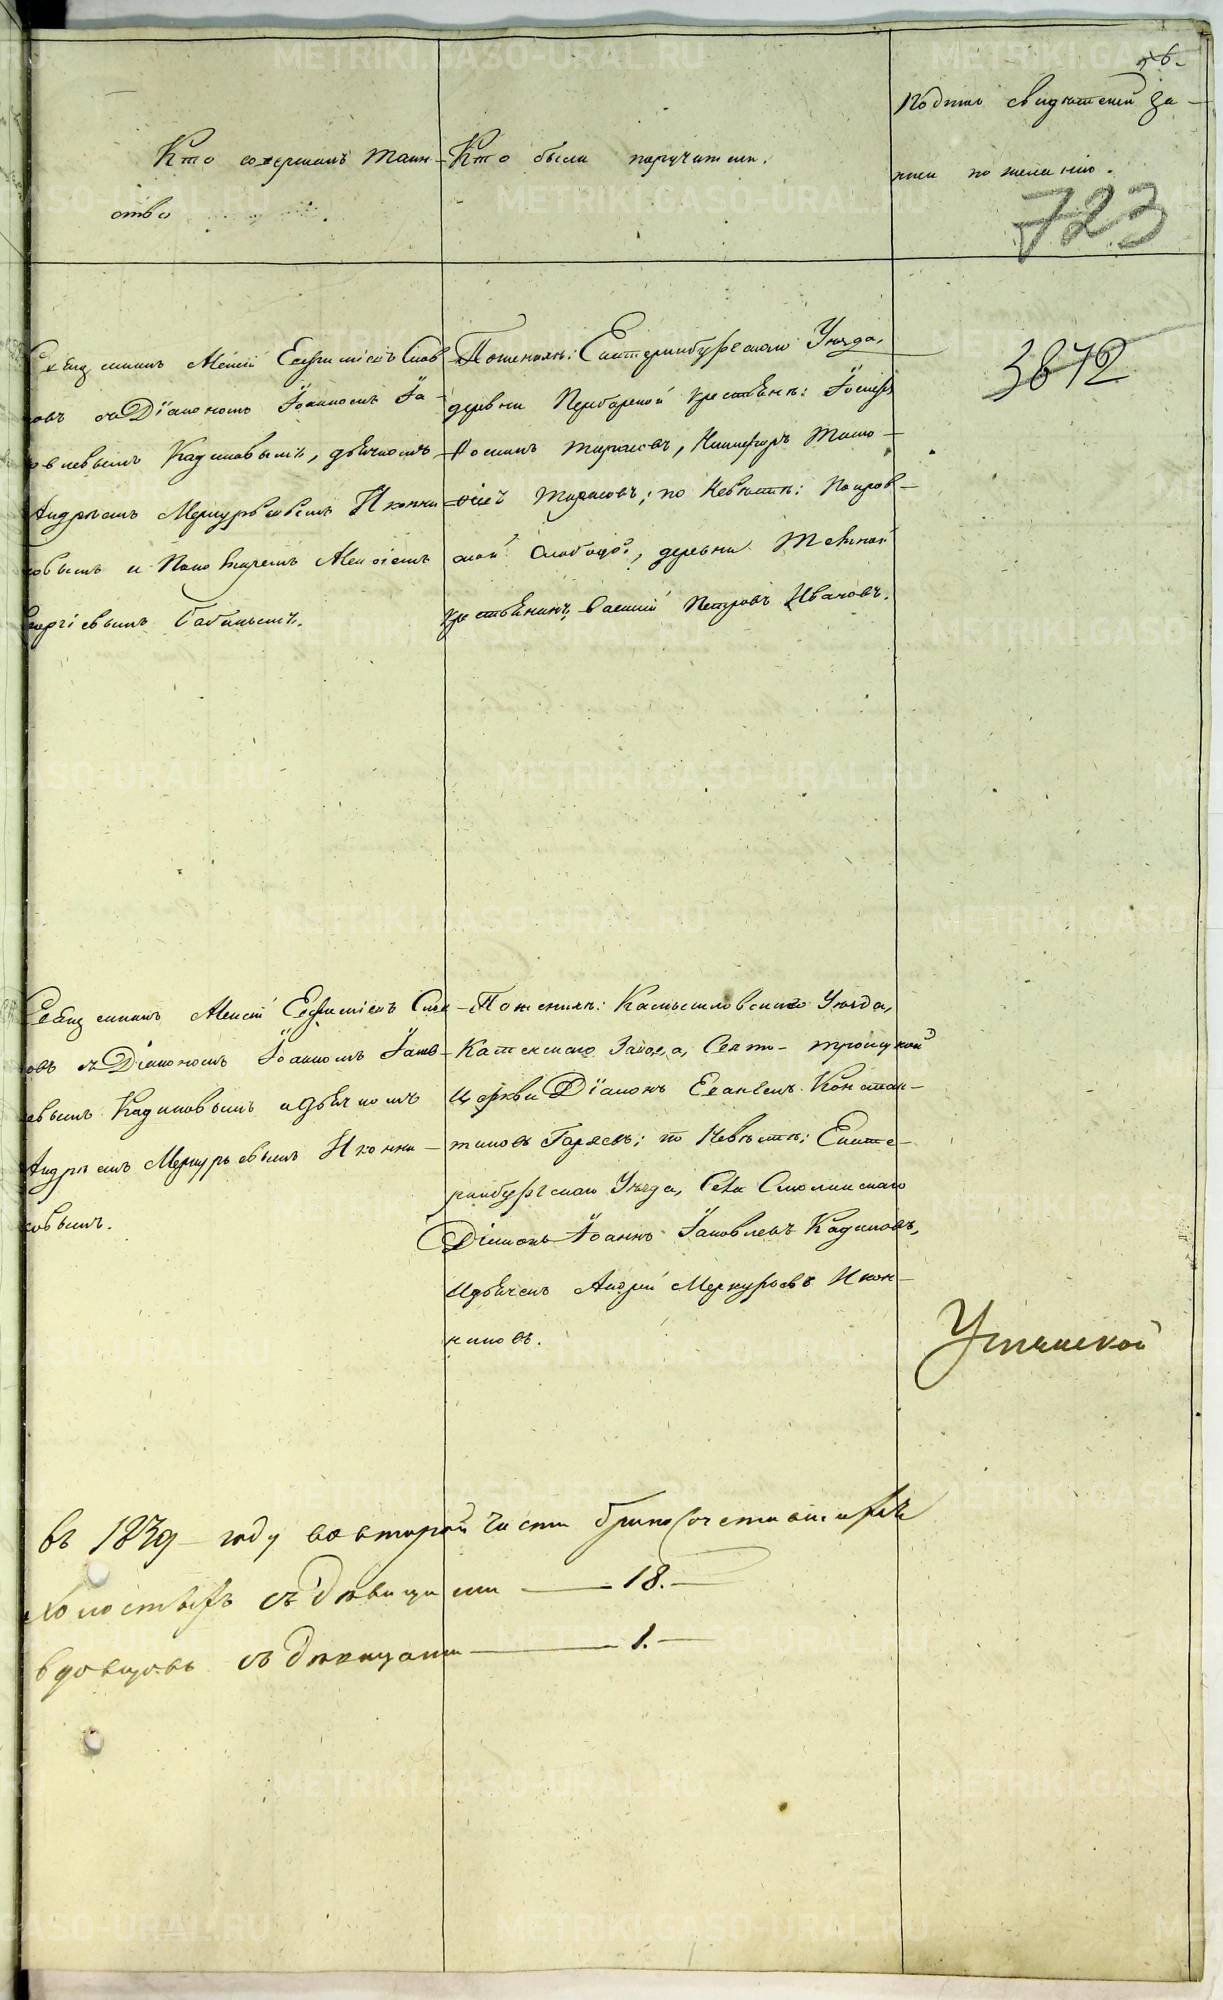 56.
Кто совершалъ Таин-
ство
Кто были поручители.
Подпись свидѣтелей За-
писи по желанію.
723
3872
Священникъ Алексій Евфиміевъ Слов
овъ съ Діакономъ Іоанномъ Іа-
ковлевымъ Кадиковымъ, дьячкомъ
Андреемъ Меркурьевымъ Иконни
ковымъ и Пономаремъ Алексіемъ
Георгіевымъ Бабинымъ.
По женихѣ: Екатеринбургскаго Уѣзда,
деревни крестьяне: Іосифъ
Тарасовъ, Никифоръ Тимо-
ѳеевъ Тарасовъ; по Невѣстѣ: Покров-
ской Слободы, деревни
крестьянинъ Василій Петровъ Ивановъ.
Священникъ Алексій Евфиміевъ Слов
овъ съ Діакономъ Іоанномъ Іаков-
левымъ Кадиковымъ и дьячкомъ
Андреемъ Меркурьевымъ Иконни-
ковымъ.
По женихѣ: Камышловскаго Уѣзда,
Каменскаго Завода, Свято-Троицкой
Церкви Діаконъ Константи-
новъ; по Невѣстѣ: Екате-
ринбургскаго Уѣзда, Села Смолинскаго
Діаконъ Іоаннъ Іаковлевъ Кадиковъ,
и дьячекъ Андрей Меркурьевъ Икон-
никовъ.
въ 1839 году во второй части бракосочетавшихся
Холостыхъ съ дѣвицами 18.
вдовцовъ съ дѣвицами 1.
METRIKI.GASO-URAL.RU